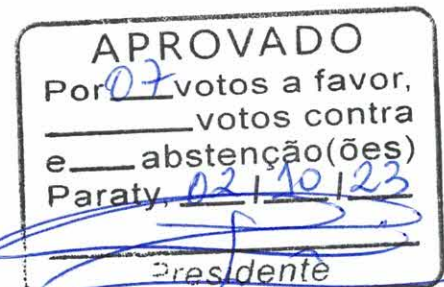 APROVADO
Por 07 votos a favor,
votos contra
e abstenção(ões)
Paraty, 02/10/23
Presidente